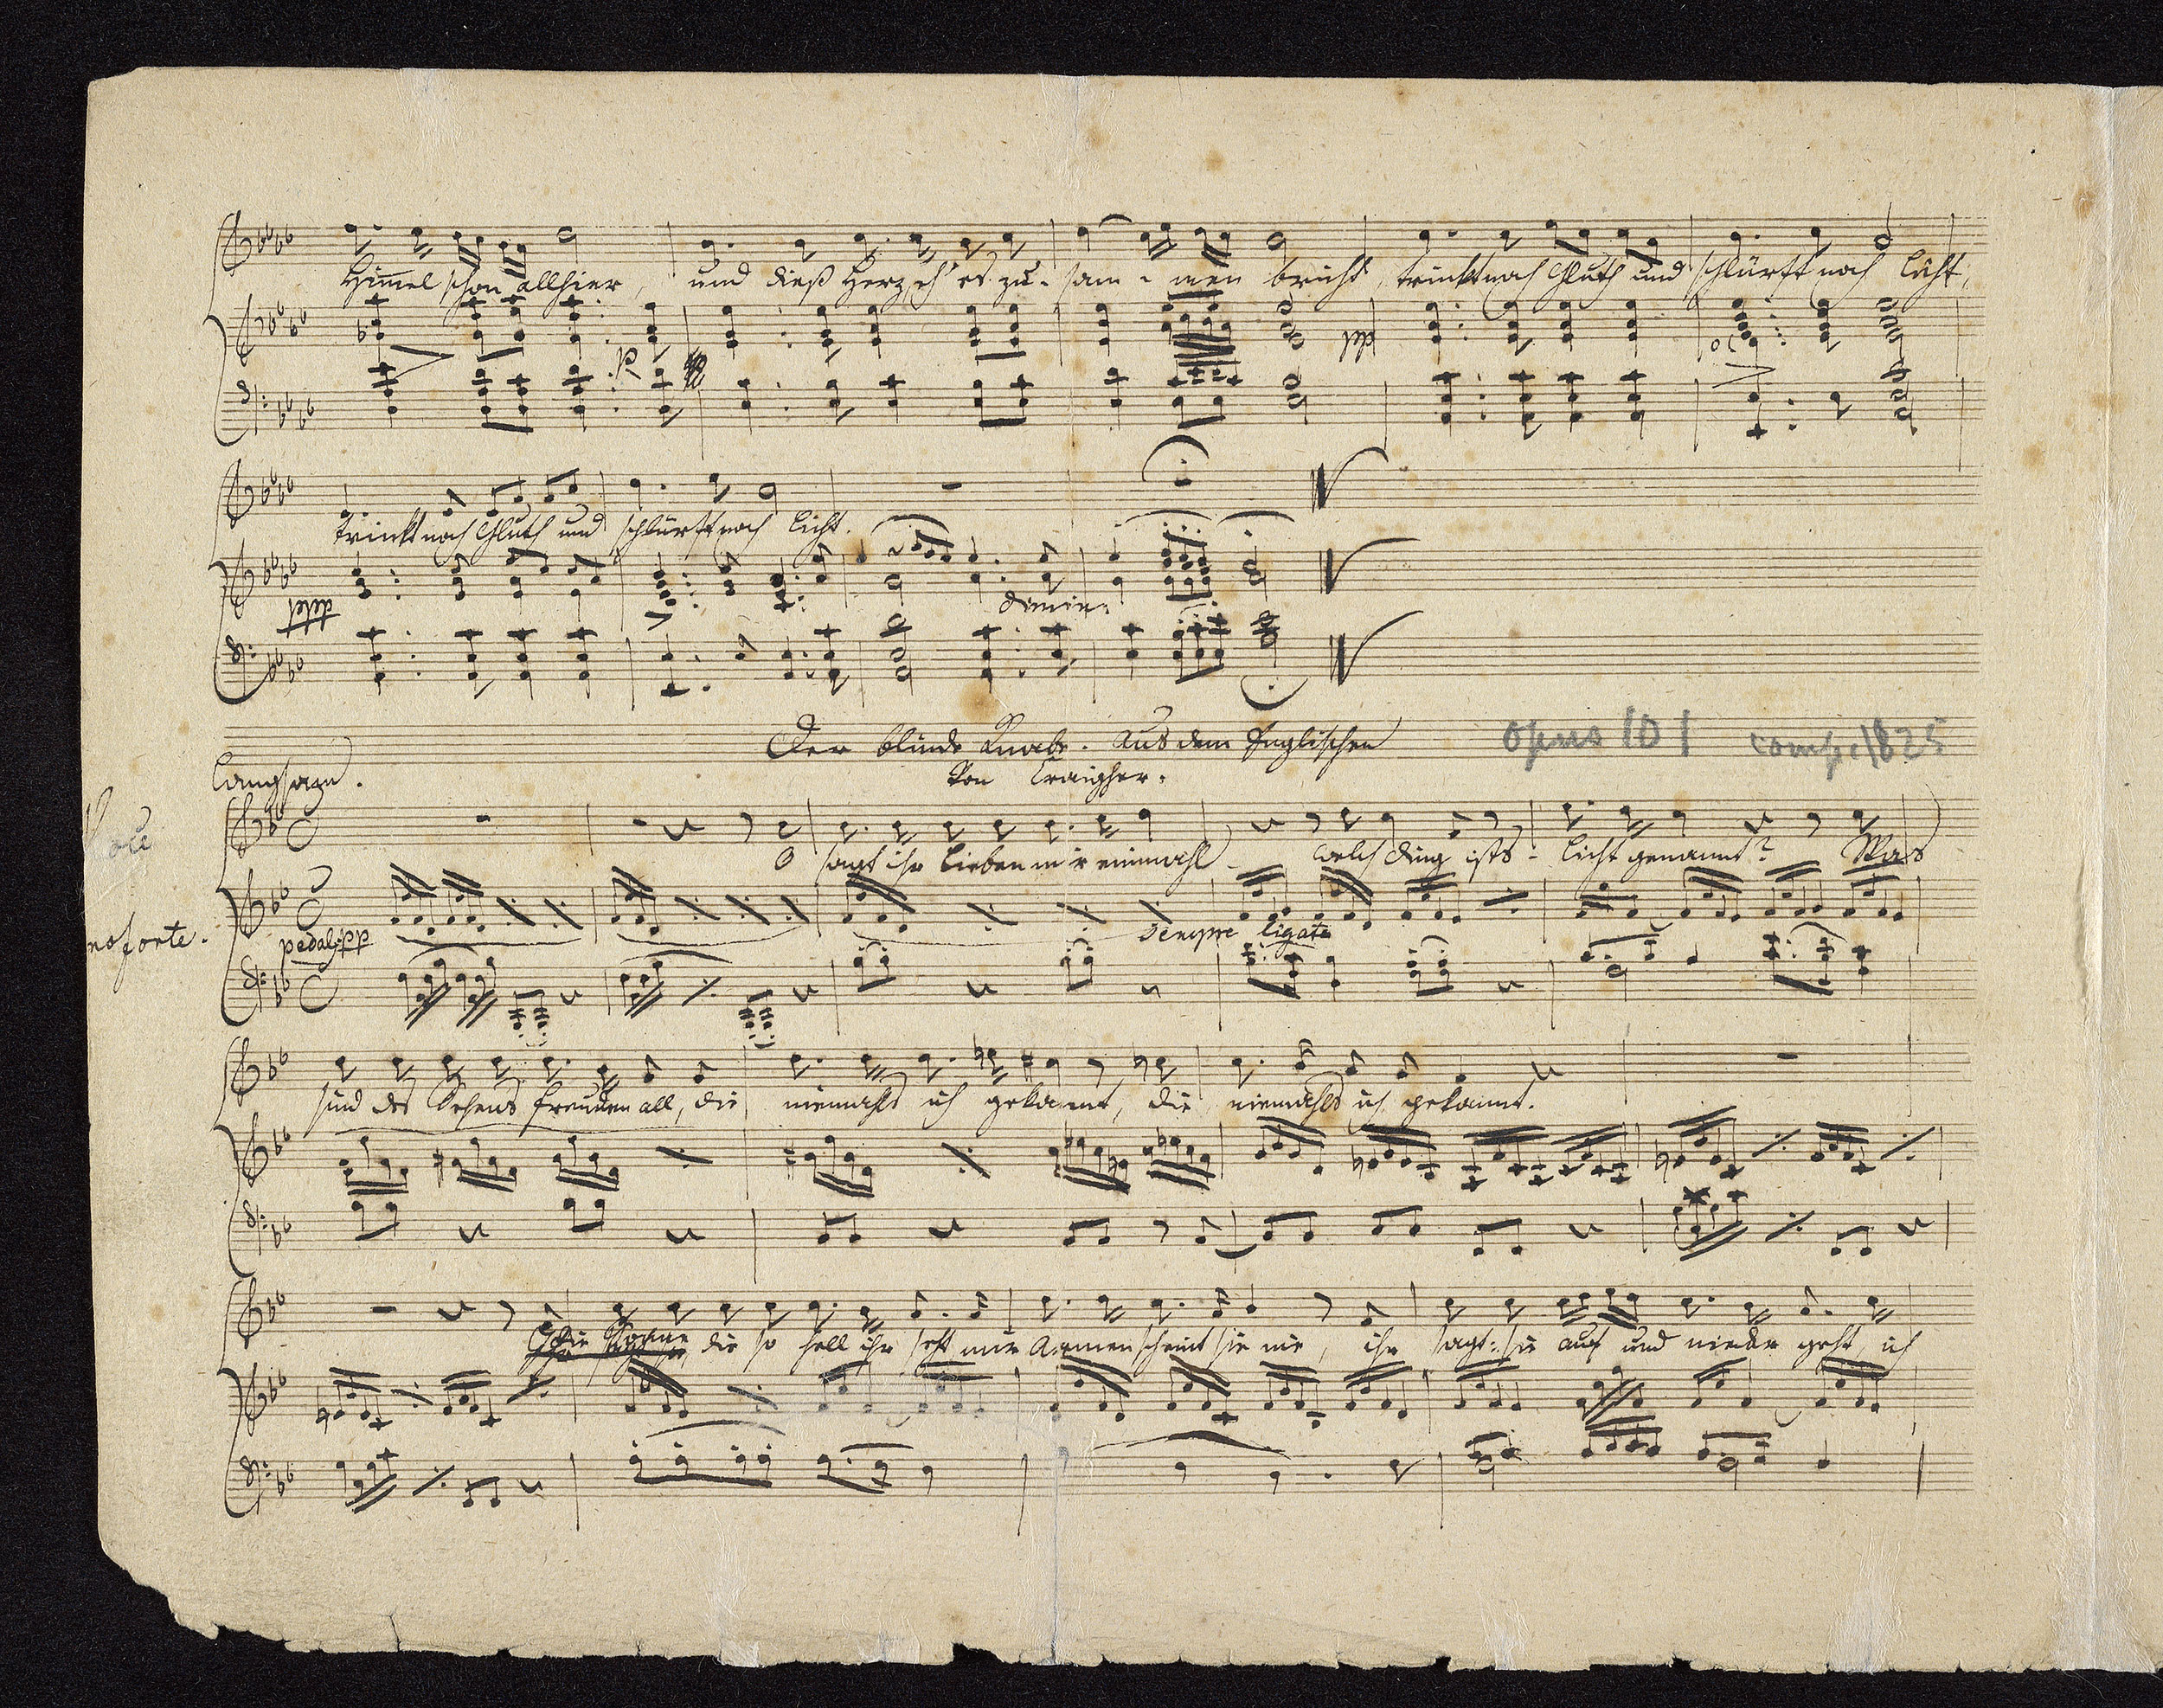 Himmel schon allhier, und dieß Herz, eh' es zu-sam-men bricht, trinkt noch Gluth und schlürft noch Licht,
p
pp
trinkt noch Gluth und schlürft noch Licht.
ppp
dimin:
Der blinde Knabe. Aus dem Englischen
opus 101 comp. 1825
von Craigher.
Langsam.
Voce
O sagt ihr Lieben mir einmahl welch Ding ist's Licht genannt? Was
noforte.
pedal: pp
Sempre ligato
sind des Sehens Freuden all, die niemahls ich gekannt, die niemahls ich gekannt.
die so hell ihr seht mir Armen scheint sie nie, ihr sagt: sie auf und nieder geht, ich